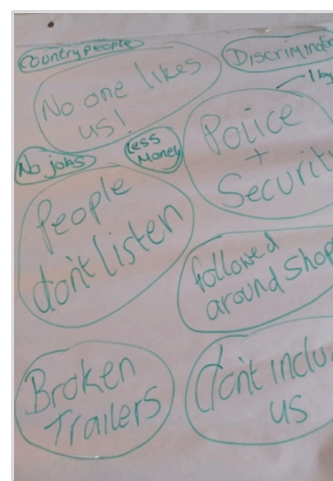 Country people
Discriminati
No one likes
us!
1 by
Police
+
Securit
No jobs
less
Money
People
don't listen
followed
around Shop
Broken
Trailers
don't inclu
us